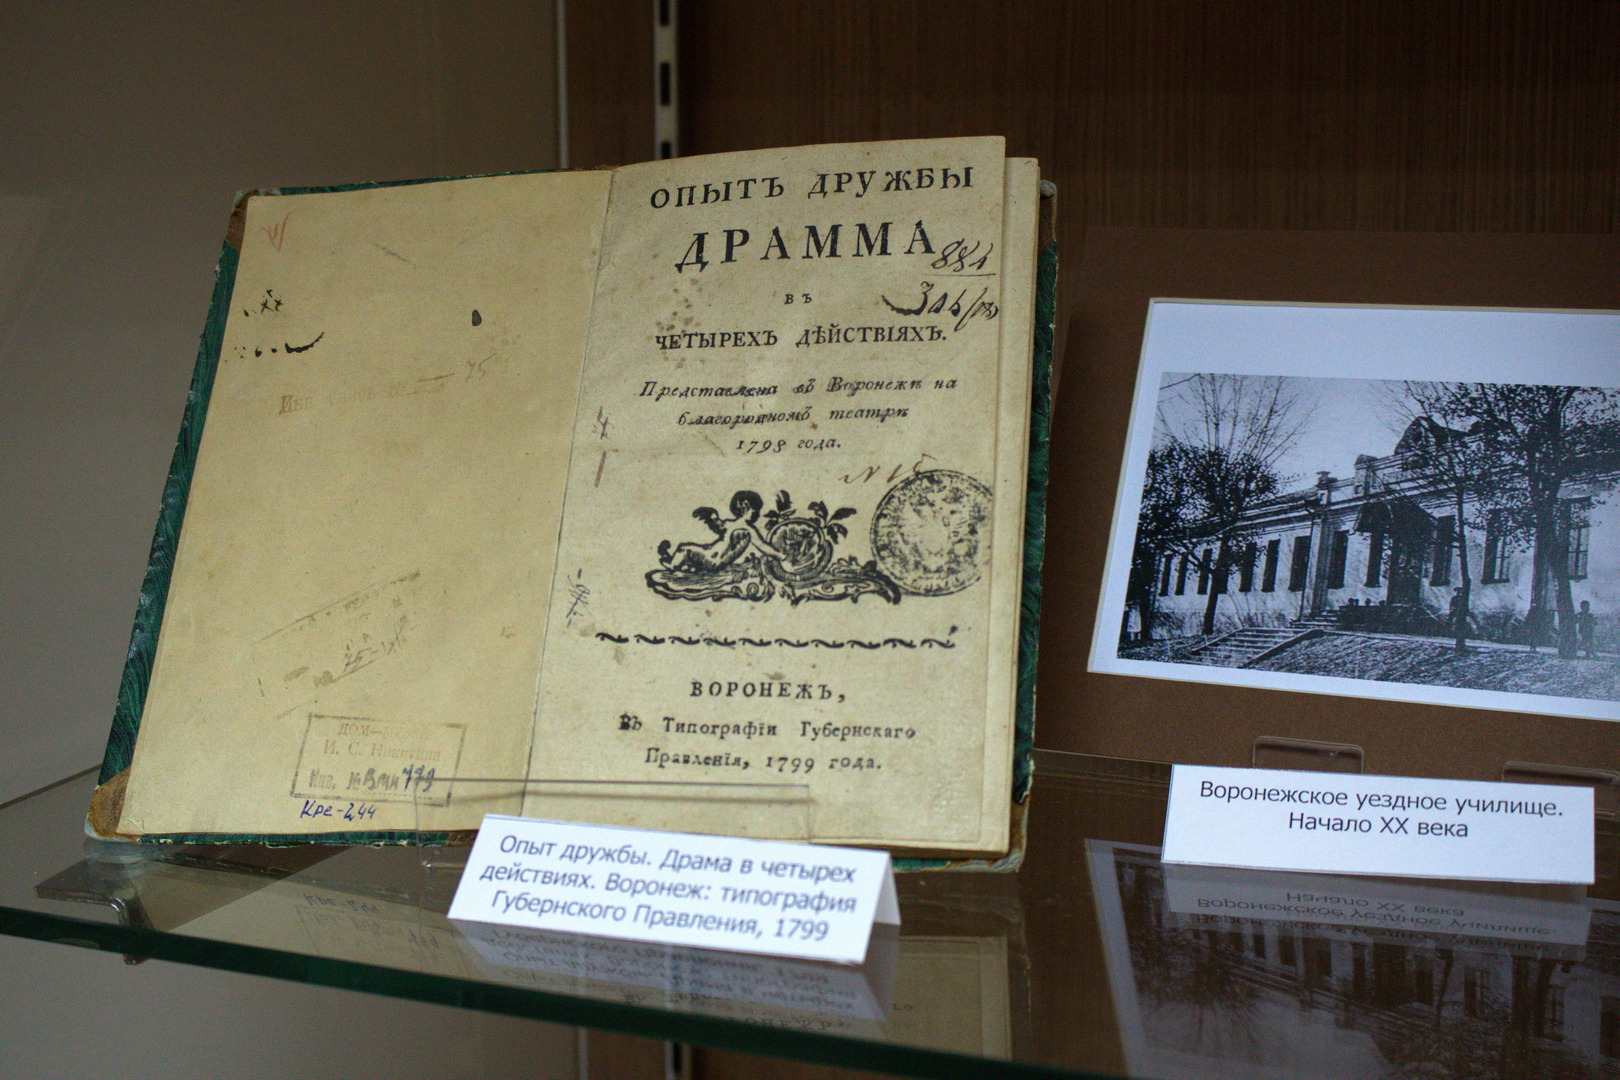 ОПЫТЪ ДРУЖБЫ
ДРАММА
884
ВЪ
ЧЕТЫРЕХЪ ДѢЙСТВІЯХЪ.
Представлена въ Воронежѣ на
благородномъ театрѣ
1798 года.
N 15
ВОРОНЕЖЪ,
Въ Типографіи Губернскаго
Правленія, 1799 года.
75
ДОМ—
И. С. Никитина
Инв. № Вми 779
Кре-244
Опыт дружбы. Драма в четырех
действиях. Воронеж: типография
Губернского Правления, 1799
Воронежское уездное училище.
Начало XX века